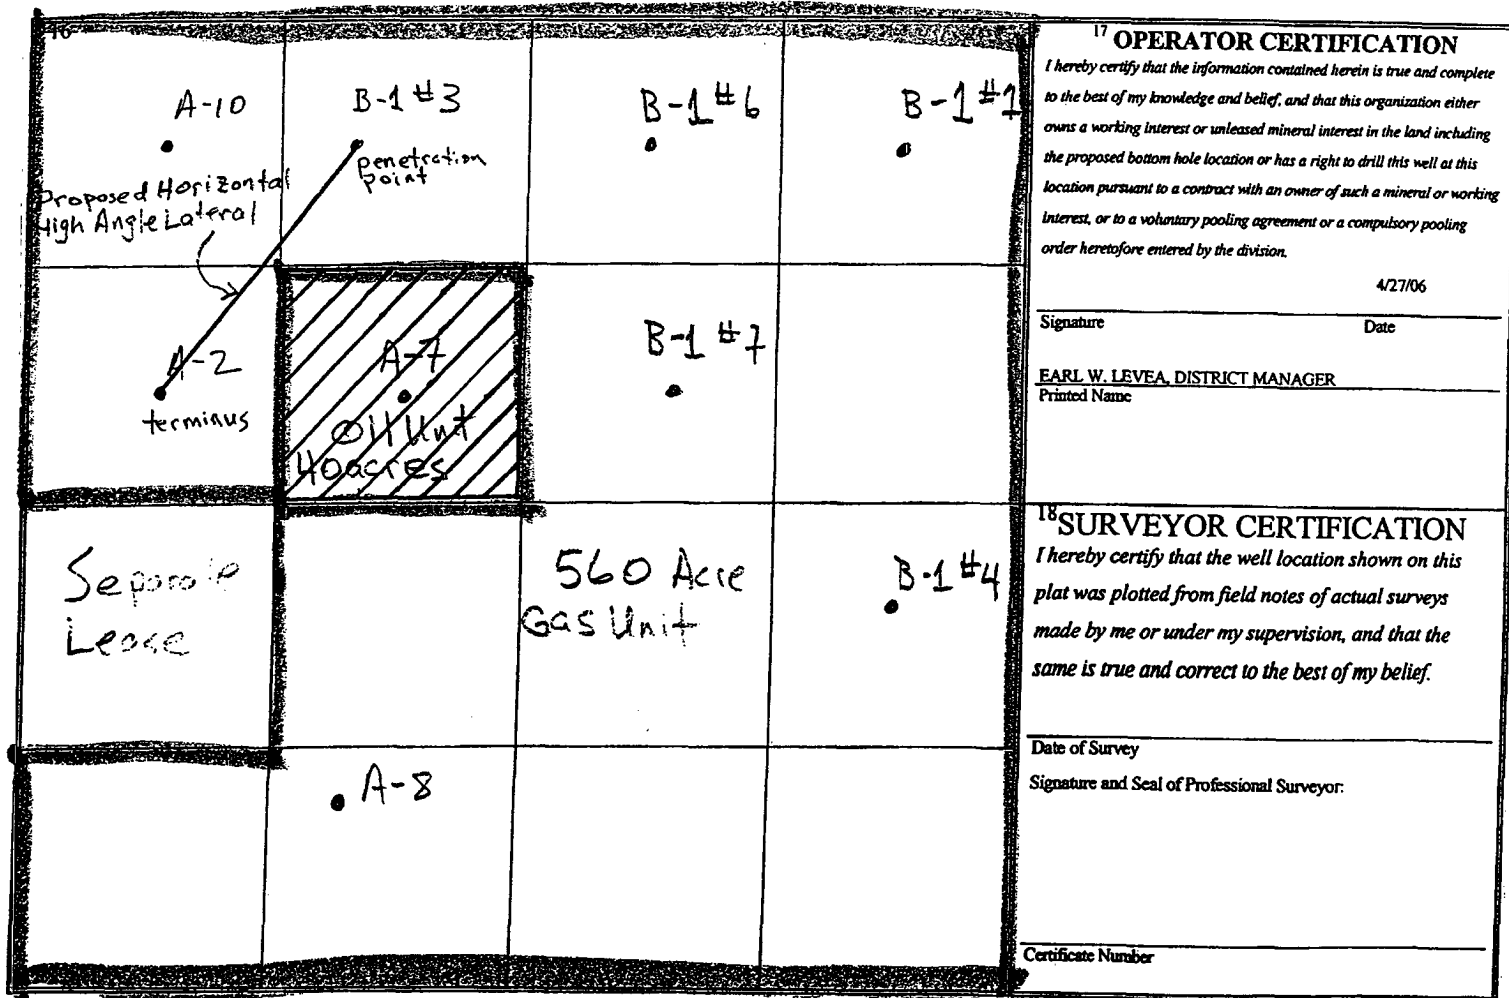 16
A-10
B-1 #3
B-1 #6
B-1 #1
penetration
point
Proposed Horizontal
High Angle Lateral
A-2
terminus
A-7
Oil Unit
40 acres
B-1 #7
Separate
Lease
560 Acre
Gas Unit
B-1 #4
A-8
17 OPERATOR CERTIFICATION
I hereby certify that the information contained herein is true and complete
to the best of my knowledge and belief, and that this organization either
owns a working interest or unleased mineral interest in the land including
the proposed bottom hole location or has a right to drill this well at this
location pursuant to a contract with an owner of such a mineral or working
interest, or to a voluntary pooling agreement or a compulsory pooling
order heretofore entered by the division.
4/27/06
Signature Date
EARL W. LEVEA, DISTRICT MANAGER
Printed Name
18 SURVEYOR CERTIFICATION
I hereby certify that the well location shown on this
plat was plotted from field notes of actual surveys
made by me or under my supervision, and that the
same is true and correct to the best of my belief.
Date of Survey
Signature and Seal of Professional Surveyor:
Certificate Number